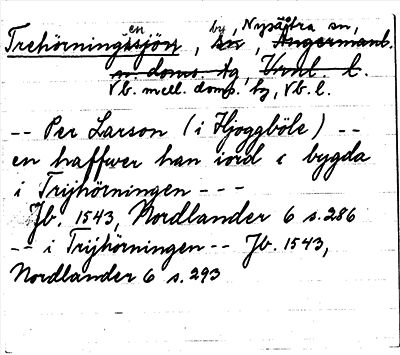 Trehörningen, by, Nysätra sn,
Trehörningsjön, sn, Ångermanl.
n. doms. tg, Vrnl. l.
Vb. mell. doms. tg, Vb. l.
-- Per Larson (i Hjoggböle) --
en haffwer han iord i bygda
i Trijhörningen ---
Jb. 1543, Nordlander 6 s. 286
-- i Trijhörningen -- Jb. 1543,
Nordlander 6 s. 293